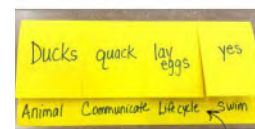 Ducks quack lay yes
eggs
Animal Communicate Lifecycle Swim